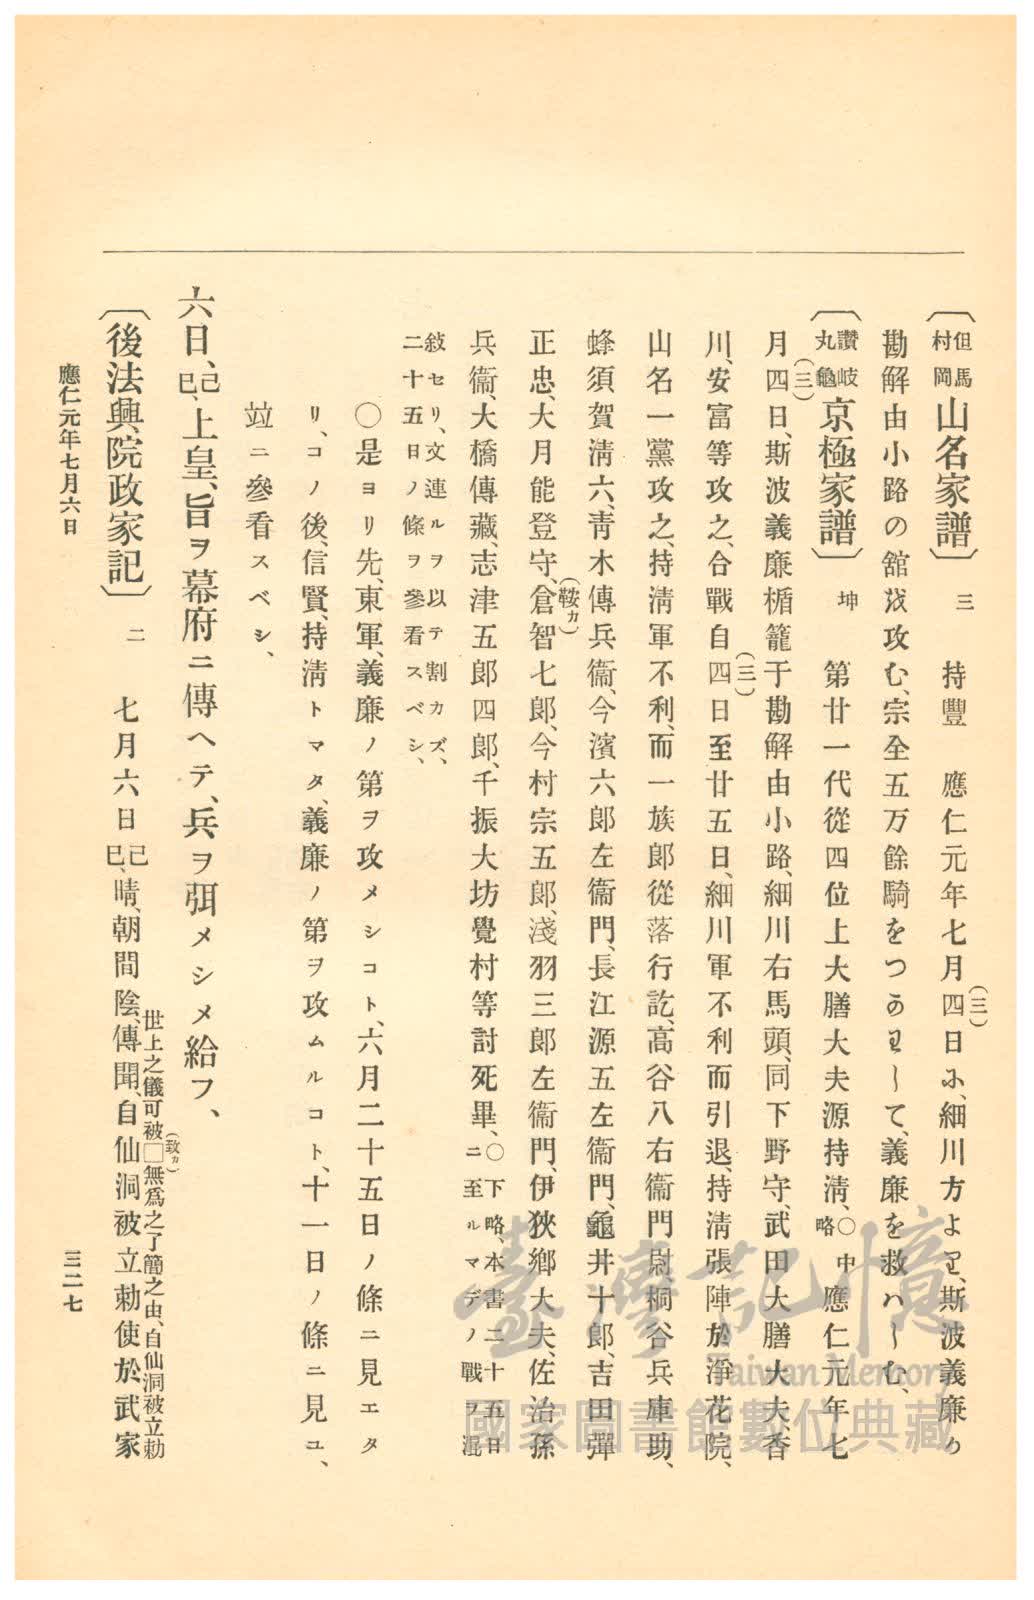 〔但馬村岡山名家譜〕三 持豐 應仁元年七月四(三)日ふ、細川方よ𛄋、斯波義廉の
勘解由小路の舘𛁠攻む、宗全五万餘騎をつのゐ〳〵して、義廉を救ハしむ、
〔讚岐丸龜京極家譜〕坤 第廿一代從四位上大膳大夫源持淸、○中略 應仁元年七
月四(三)日、斯波義廉楯籠于勘解由小路、細川右馬頭、同下野守、武田大膳大夫、香
川、安富等攻之、合戰自四(三)日至廿五日、細川軍不利而引退、持淸張陣於淨花院、
山名一黨攻之、持淸軍不利、而一族郎從落行訖、高谷八右衞門尉桐谷兵庫助、
蜂須賀淸六、靑木傳兵衞、今濱六郎左衞門、長江源五左衞門、龜井十郎、吉田彈
正忠、大月能登守、倉(鞍カ)智七郎、今村宗五郎、淺羽三郎左衞門、伊狹鄕大夫、佐治孫
兵衞、大橋傳藏、志津五郎四郎、千振大坊覺村等討死畢、○下略、本書二十五日ニ至ルマデノ戰ヲ混
敍セリ、文連ルヲ以テ割カズ、二十五日ノ條ヲ參看スベシ、
○是ヨリ先、東軍、義廉ノ第ヲ攻メシコト、六月二十五日ノ條ニ見エタ
リ、コノ後、信賢、持淸トマタ、義廉ノ第ヲ攻ムルコト、十一日ノ條ニ見ユ、
竝ニ參看スベシ、
六日、己巳、上皇、旨ヲ幕府ニ傳ヘテ、兵ヲ弭メシメ給フ、
〔後法興院政家記〕二 七月六日、己巳、晴、朝間陰、傳聞、自仙洞被立勅使於武家
世上之儀可被□(致カ)無爲之了簡之由、自仙洞被立勅
應仁元年七月六日
三二七
臺灣記憶
Taiwan Memory
國家圖書館數位典藏